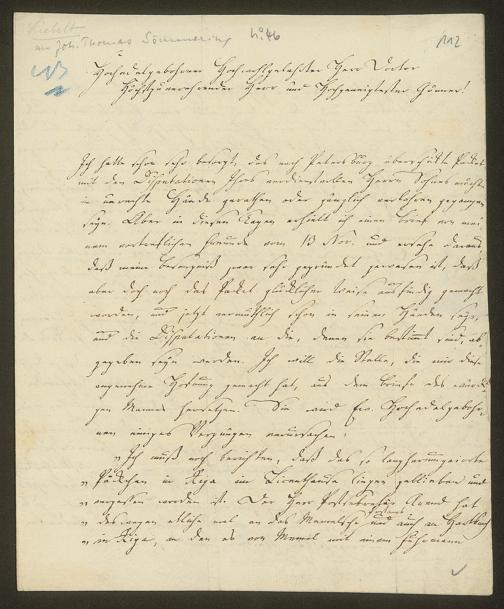 Liebelt
an Joh. Thomas Sömmerring No. 46 112
Hochedelgebohrner Hochachtgelahrter Herr Doctor
Höchstzuverehrender Herr und Hochgeneigtester Gönner!
Ich hatte schon sehr besorgt, daß das nach Petersburg überschickte Paket
mit den Disputationen Ihres verdienstvollen Herrn Sohnes möchte
in unrechte Hände gerathen oder gänzlich verlohren gegangen
seyn. Aber in diesen Tagen erhielt ich einen Brief von mei-
nem vortreflichen Freunde vom 13 Nov. und ersehe daraus,
daß meine Besorgniß zwar sehr gegründet gewesen ist, daß
aber doch noch das Paket glücklicher Weise ausfündig gemacht
worden, und jetzt vermuthlich schon in seinen Händen seyn,
und die Disputationen an die, denen sie bestimmt sind, ab-
gegeben seyn werden. Ich will die Stelle, die mir diese
angenehme Hofnung gemacht hat, aus dem Briefe des würdi-
gen Mannes hersetzen. Sie wird Ew. Hochedelgebohr-
nen einiges Vergnügen verursachen:
„Ich muß noch berichten, daß das so lang herumgeirrte
„Päckchen in Riga im Licenthause liegen geblieben und
„vergessen worden ist. Der Herr hat
„deswegen etliche mal an das Memelsche und auch an Hartknoch
„in Riga, an den es von Memel mit einem Fuhrmann